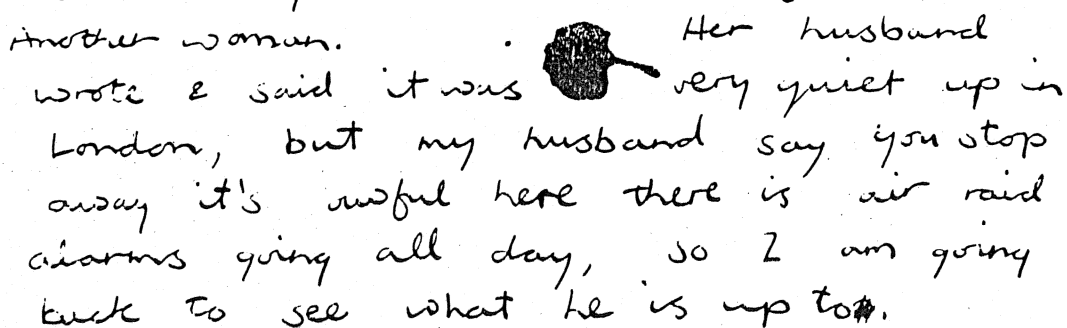 Another woman. Her husband
wrote & said it was very quiet up in
London, but my husband say you stop
away it's awful here there is air raid
alarms going all day, so I am going
back to see what he is up to.